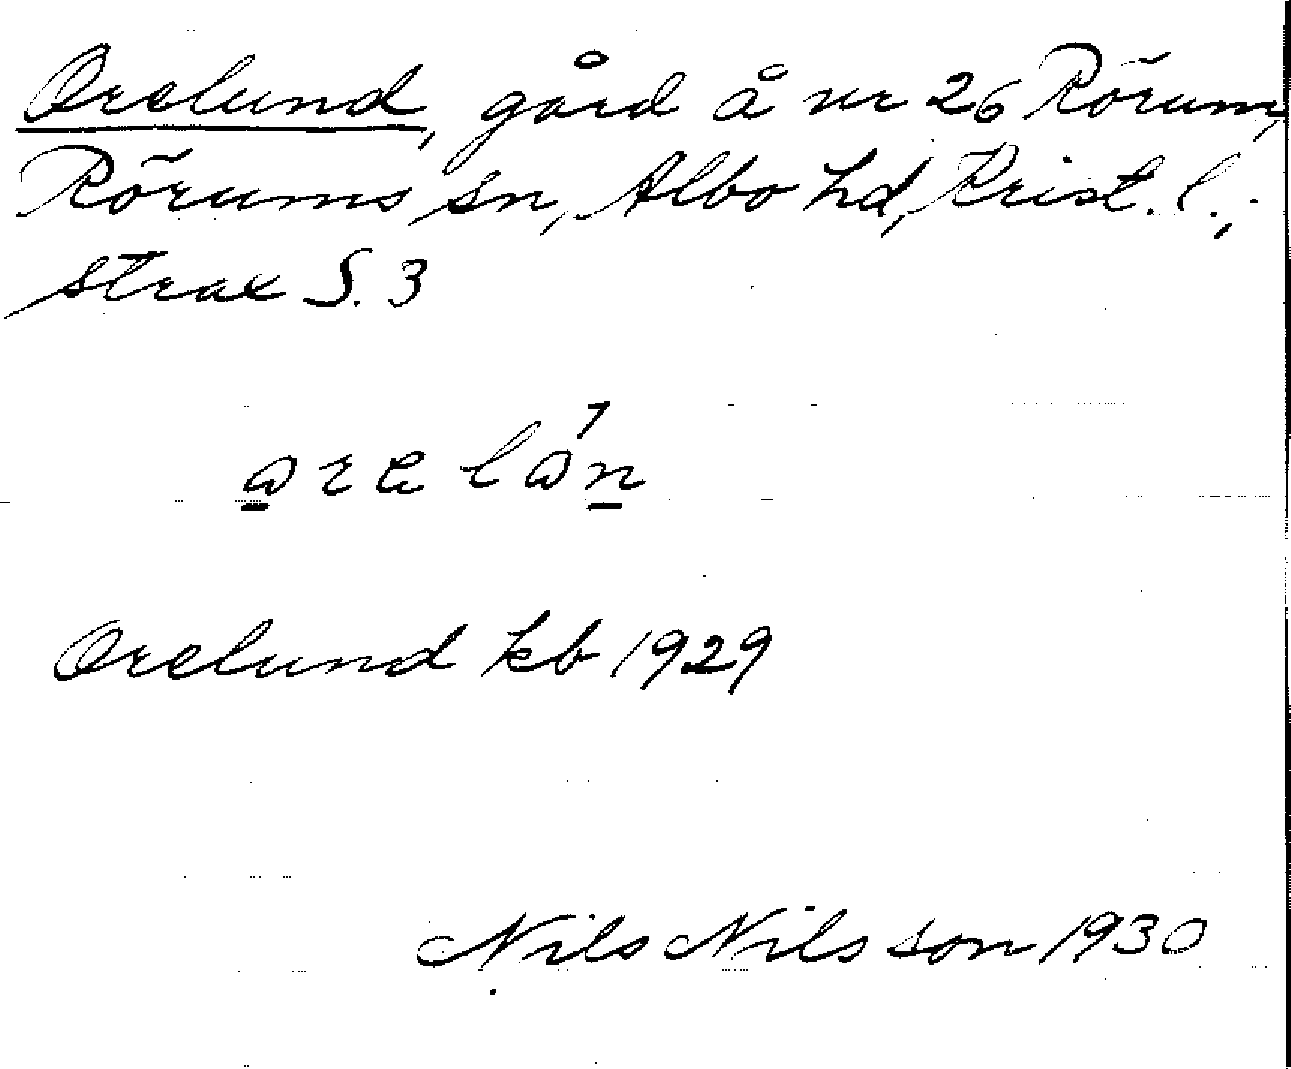 Orelund, gård å nr 26 Rörum,
Rörums sn, Albo hd, Krist. l.;
strax S. 3
Orelund kb 1929
Nils Nilsson 1930